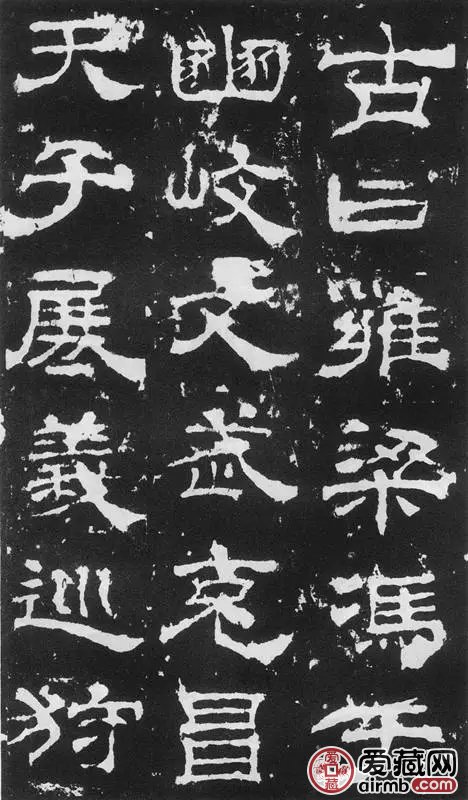 古曰雍梁馮于
豳岐文武克昌
天子展義巡狩
爱藏网
airmb.com